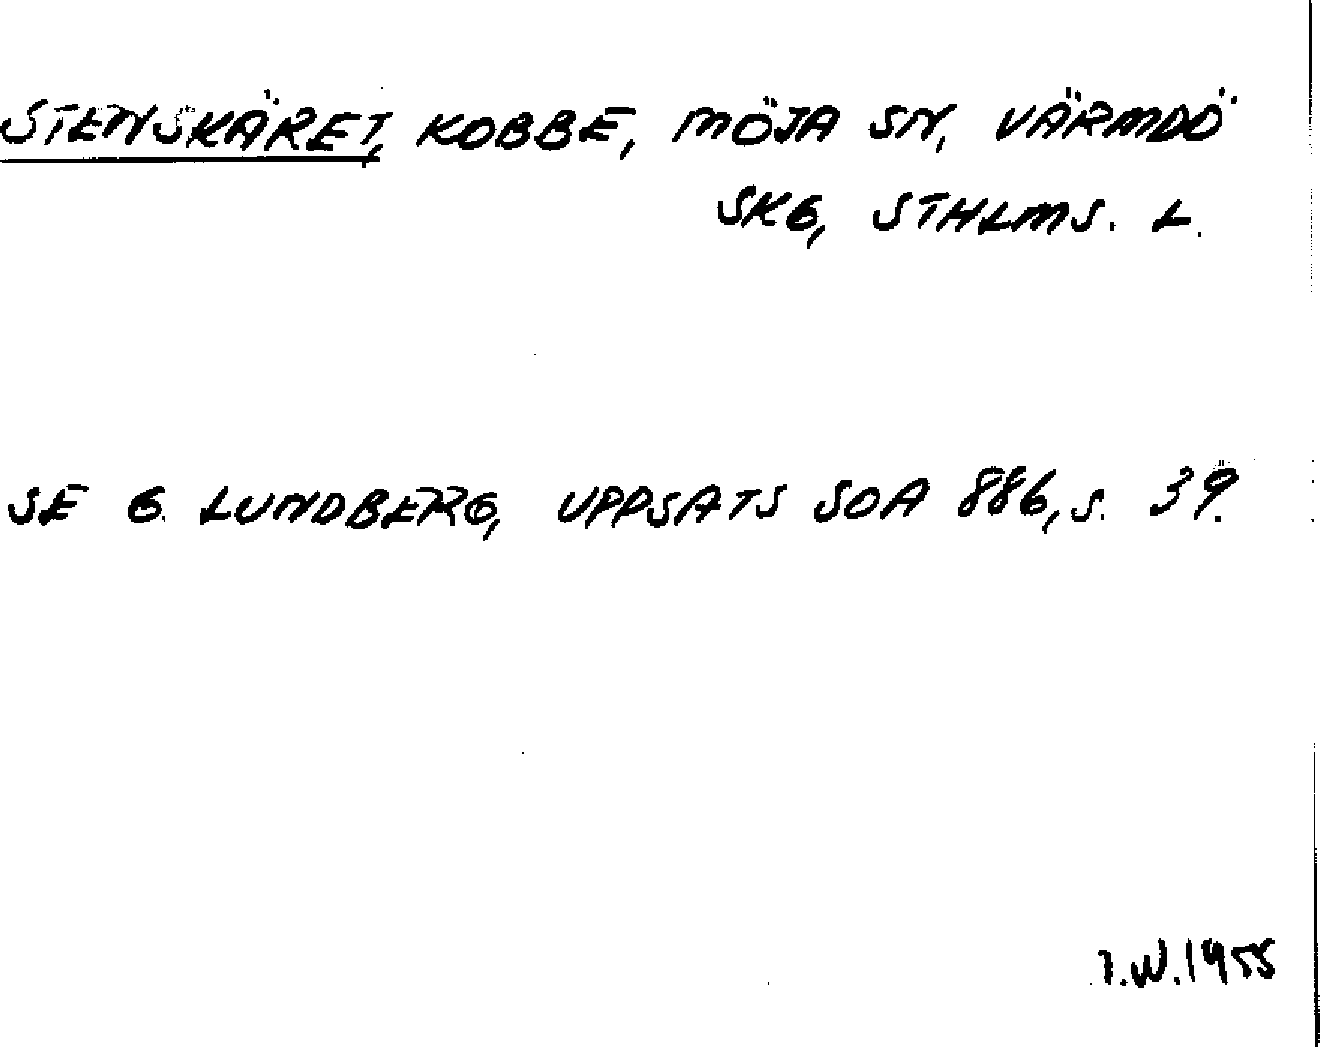 STENSKÄRET, KOBBE, MÖJA SN, VÄRMDÖ
SKG, STHLMS. L.
SE G. LUNDBERG, UPPSATS SOA 886, S. 39.
I.W.1955